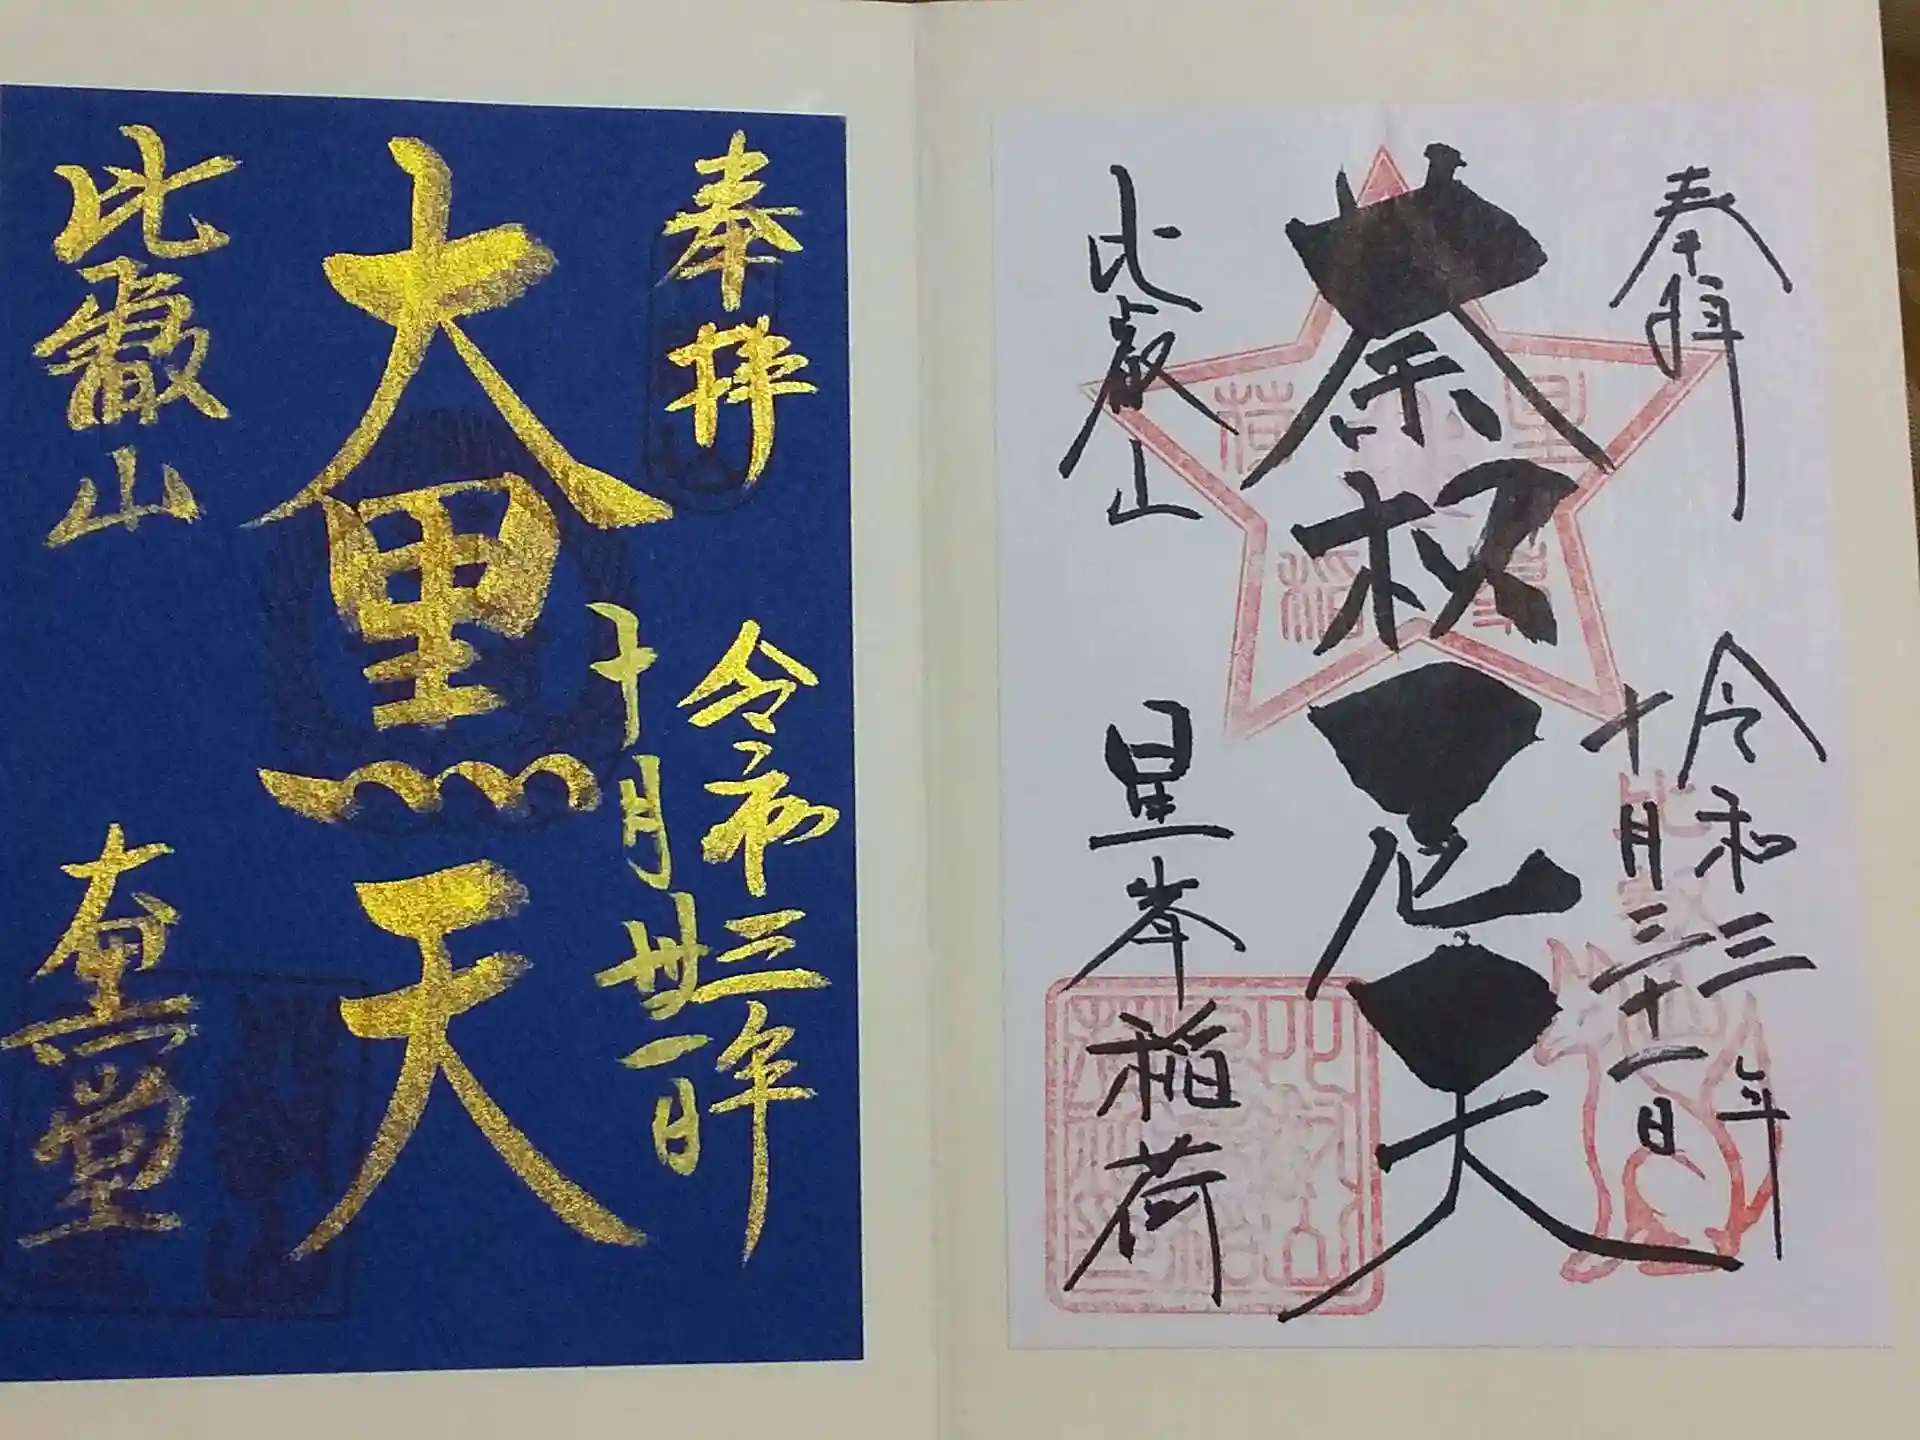 奉拝
令和三年
十月三十一日
荼枳尼天
比叡山
星峯稲荷
奉拝
令和三年
十月卅一日
大黒天
比叡山
大黒堂